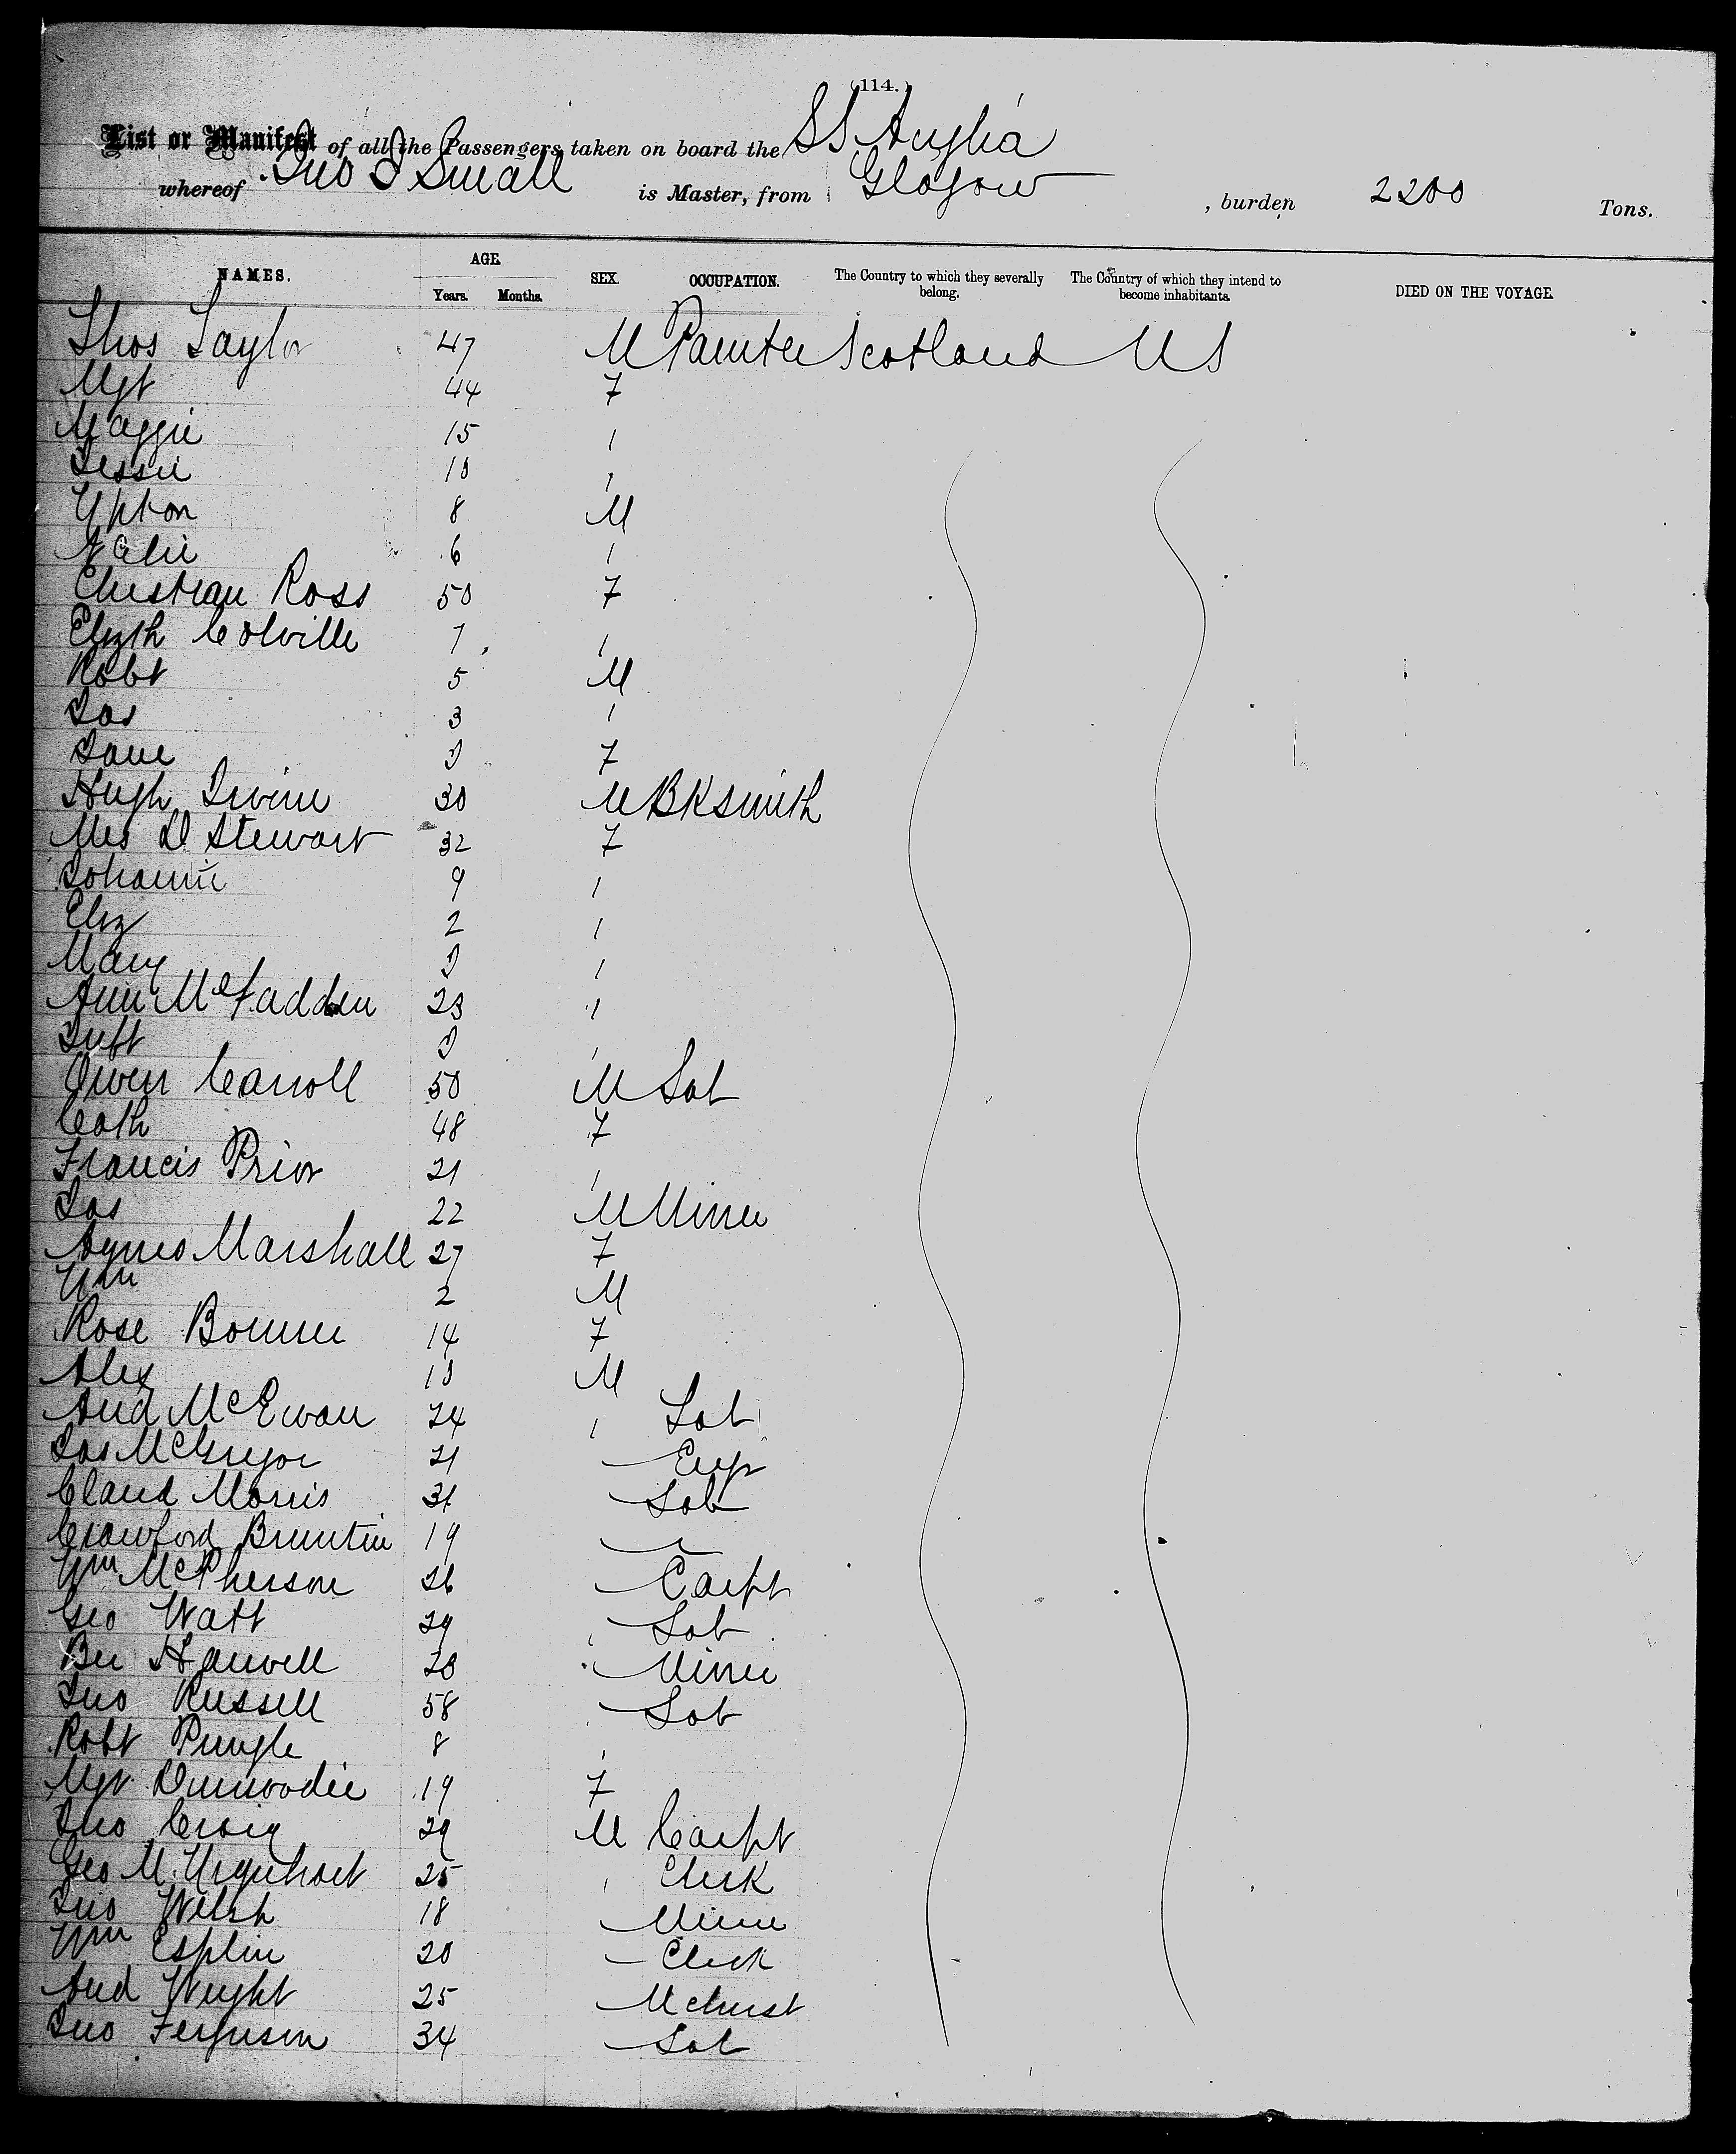 (114.)
List or Manifest of all the Passengers taken on board the SS Anglia
whereof Jno J Small is Master, from Glasgow , burden 2200 Tons.
NAMES. AGE. Years. Months. SEX. OCCUPATION. The Country to which they severally belong. The Country of which they intend to become inhabitants. DIED ON THE VOYAGE
Thos Taylor 47 M Painter Scotland U S
Mgt 44 F
Maggie 15 "
Jessie 10 "
8 M
6 "
Christian Ross 50 F
Elizth Colville 7 "
Robt 5 M
Jas 3 "
Jane 0 F
Hugh Irvine 30 M BKsmith
Mrs D Stewart 32 F
Johanna 9 "
Eliz 2 "
Mary 0 "
Ann McFadden 23 "
Inft 0 "
Owen Carroll 50 M Lab
Cath 48 F
Francis Prior 21 "
Jas 22 M Miner
Agnes Marshall 27 F
Wm 2 M
Rose Bonner 14 F
Alex 10 M
And McEwan 24 " Lab
Jas McGregor 21 Engr
Claud Morris 31 Lab
Crawford Bruntin 19
Wm McPherson 26 Carpt
Geo Watt 29 Lab
20 Miner
Jno Russell 58 Lab
Robt Pringle 8 "
Mgt Dunwoodie 19 F
Jno Craig 29 M Carpt
Geo M Urquhart 25 " Clerk
Jno Welsh 18 Miner
Wm Esplin 20 Clerk
And Wright 25 Mchnst
Jno Ferguson 34 Lab